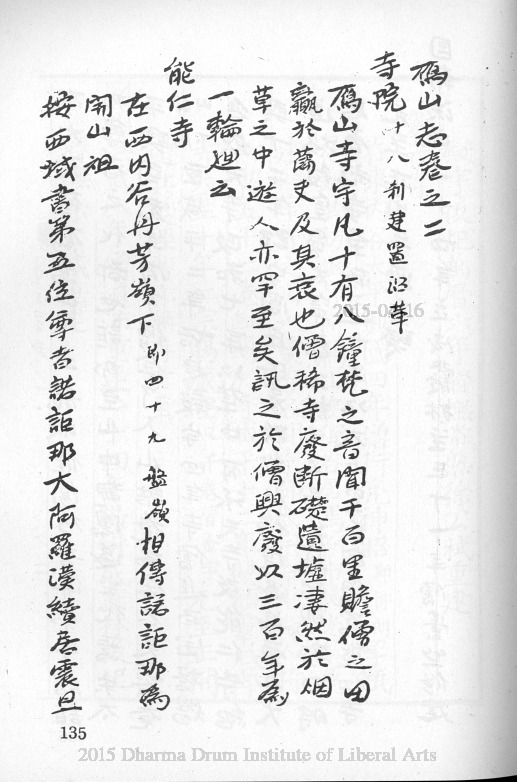 雁山志卷之二
寺院 十八刹建置沿革
雁山寺宇凡十有八鐘梵之音聞千百里贍僧之田
贏於蕭史及其衰也僧稀寺廢斷礎遺墟凄然於烟
草之中遊人亦罕至矣訊之於僧興廢以三百年為
一輪迴云
能仁寺
在西內谷丹芳嶺下即四十九盤嶺相傳諾詎那為
開山祖
按西域書第五位尊者諾詎那大阿羅漢續居震旦
135
2015-04-16
2015 Dharma Drum Institute of Liberal Arts